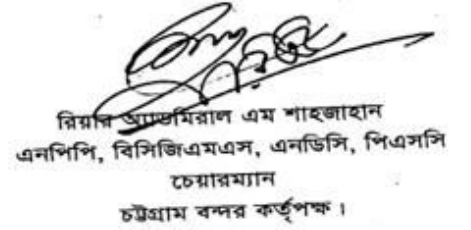 রিয়ার অ্যাডমিরাল এম শাহজাহান
এনপিপি, বিসিজিএমএস, এনডিসি, পিএসসি
চেয়ারম্যান
চট্টগ্রাম বন্দর কর্তৃপক্ষ।